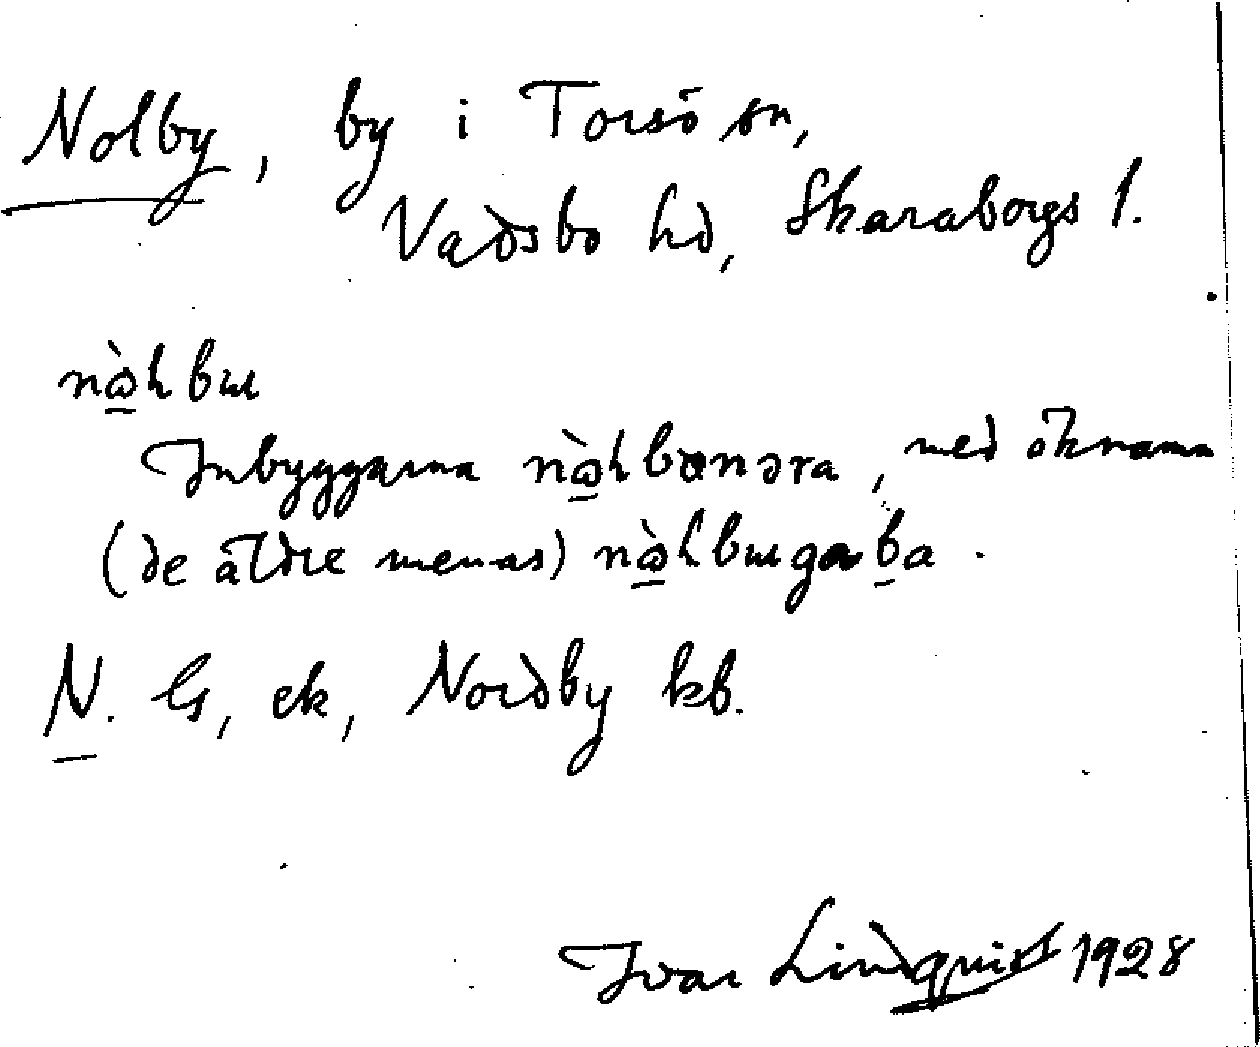 Nolby, by i Torsö sn,
Vadsbo hd, Skaraborgs l.
Inbyggarna, med öknamn
(de äldre menas)
N. Gs, ek, Nordby kb.
Ivar Lindquist 1928